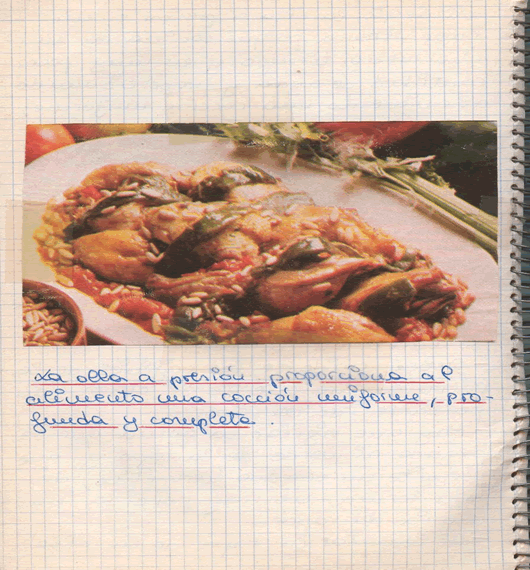 La olla a presión proporciona al
alimento una cocción uniforme, pro-
funda y completa.